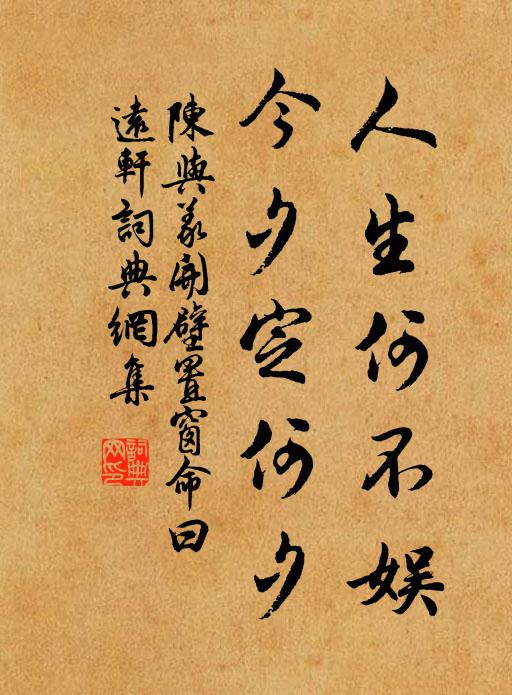 人生何不娛
今夕定何夕
陳與義開壁置窗命曰
遠軒詞典網集
詞典网印